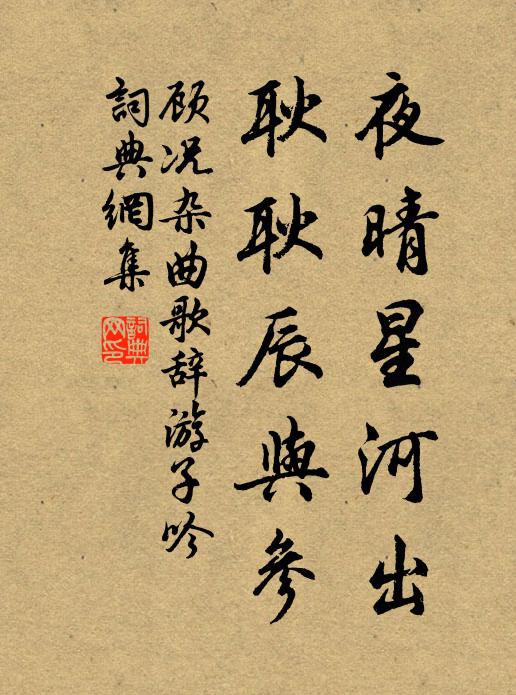 夜晴星河出
耿耿辰與參
顾况杂曲歌辞游子吟
詞典網集
詞典網印